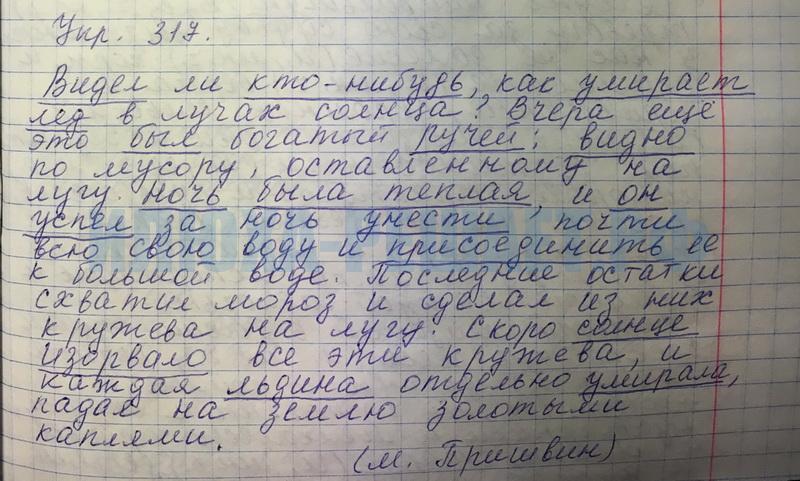 Упр. 317.
Видел ли кто-нибудь, как умирает
лед в лучах солнца? Вчера ещё
это был богатый ручей: видно
по мусору, оставленному на
лугу. Ночь была теплая, и он
успел за ночь унести почти
всю свою воду и присоединить ее
к большой воде. Последние остатки
схватил мороз и сделал из них
кружева на лугу. Скоро солнце
изорвало все эти кружева, и
каждая льдина отдельно умирала,
падая на землю золотыми
каплями.
(М. Пришвин)